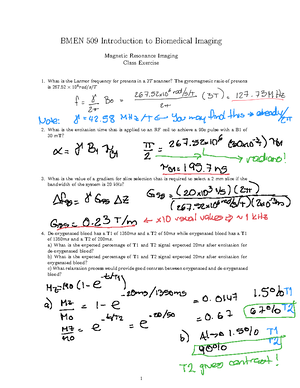 BMEN 509 Introduction to Biomedical Imaging
Magnetic Resonance Imaging
Class Exercise
1. What is the Larmor frequency for protons in a 3T scanner? The gyromagnetic ratio of protons
is 267.52 × 10⁶ rad/s/T
f = γ/2π B₀ = 267.52×10⁶ rad/s/T / 2π (3T) = 127.73 MHz
Note: γ = 42.58 MHz/T ← You may find this already/
2. What is the excitation time that is applied to an RF rod to achieve a 90o pulse with a B1 of
20 mT?
α = γ B₁ τB1
π/2 = 267.52×10⁶ (20×10⁻³)
radians!
τB1 = 195.7 ns
3. What is the value of a gradient for slice selection that is required to select a 2 mm slice if the
bandwidth of the system is 20 kHz?
Δf = γ Gss Δz
Gss = (20×10³ 1/s)(2π) / (267.52×10⁶ rad/s/T)(0.002m)
Gss = 0.23 T/m ← ×10 usual values → ~1 kHz
4. De-oxygenated blood has a T1 of 1350ms and a T2 of 50ms while oxygenated blood has a T1
of 1350ms and a T2 of 200ms.
a) What is the expected percentage of T1 and T2 signal expected 20ms after excitation for
de-oxygenated blood?
b) What is the expected percentage of T1 and T2 signal expected 20ms after excitation for
oxygenated blood?
c) What relaxation process would provide good contrast between oxygenated and de-oxygenated
blood?
Mz=M0(1-e^-t/T1)
a) Mz/M0 = 1-e^-20ms/1350ms = 0.0147 1.5% T1
Mz/M0 = e^-t/T2 = e^-20/50 = 0.67 67% T2
b) Also 1.5% T1
90% T2
T2 gives contrast!
1